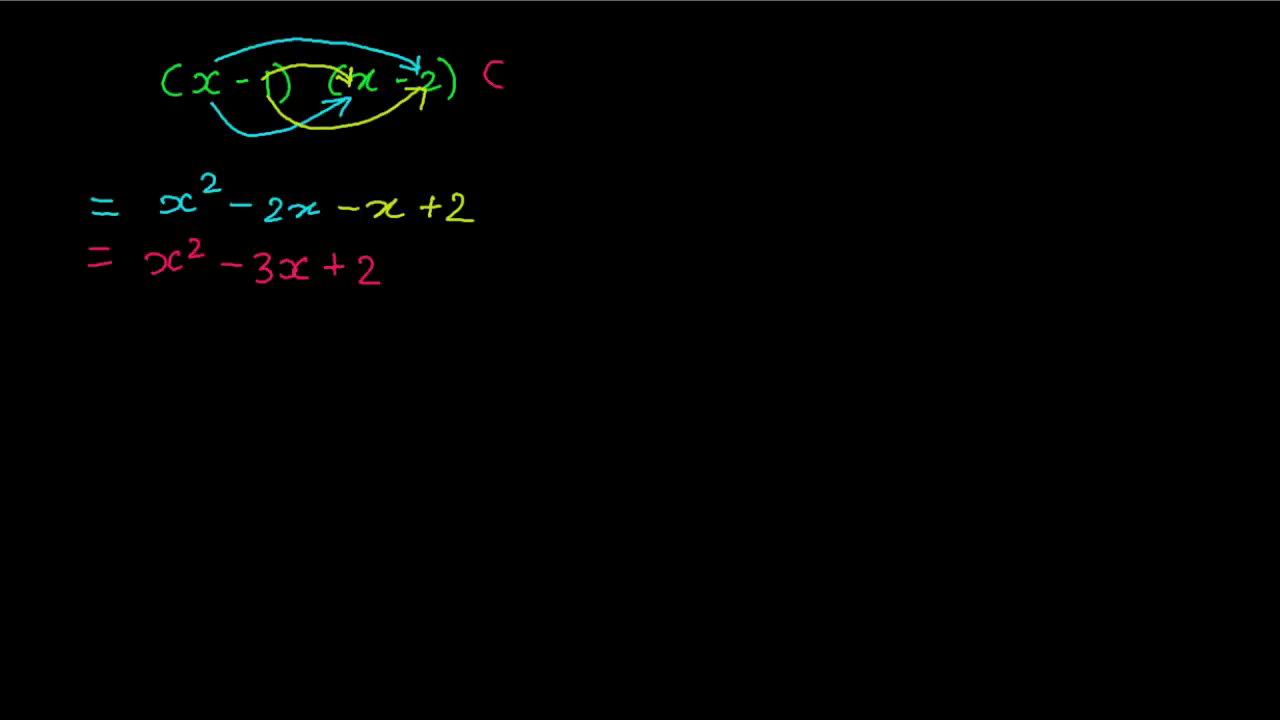 (x - 1) (x - 2) (
= x² - 2x - x + 2
= x² - 3x + 2